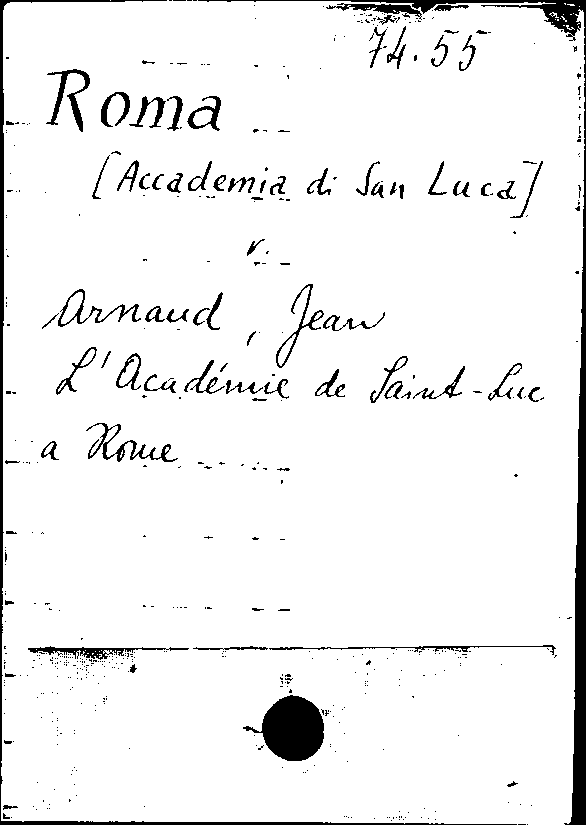 74.55
Roma
[Accademia di San Luca]
v.
Arnaud, Jean
L'Académie de Saint-Luc
a Rome